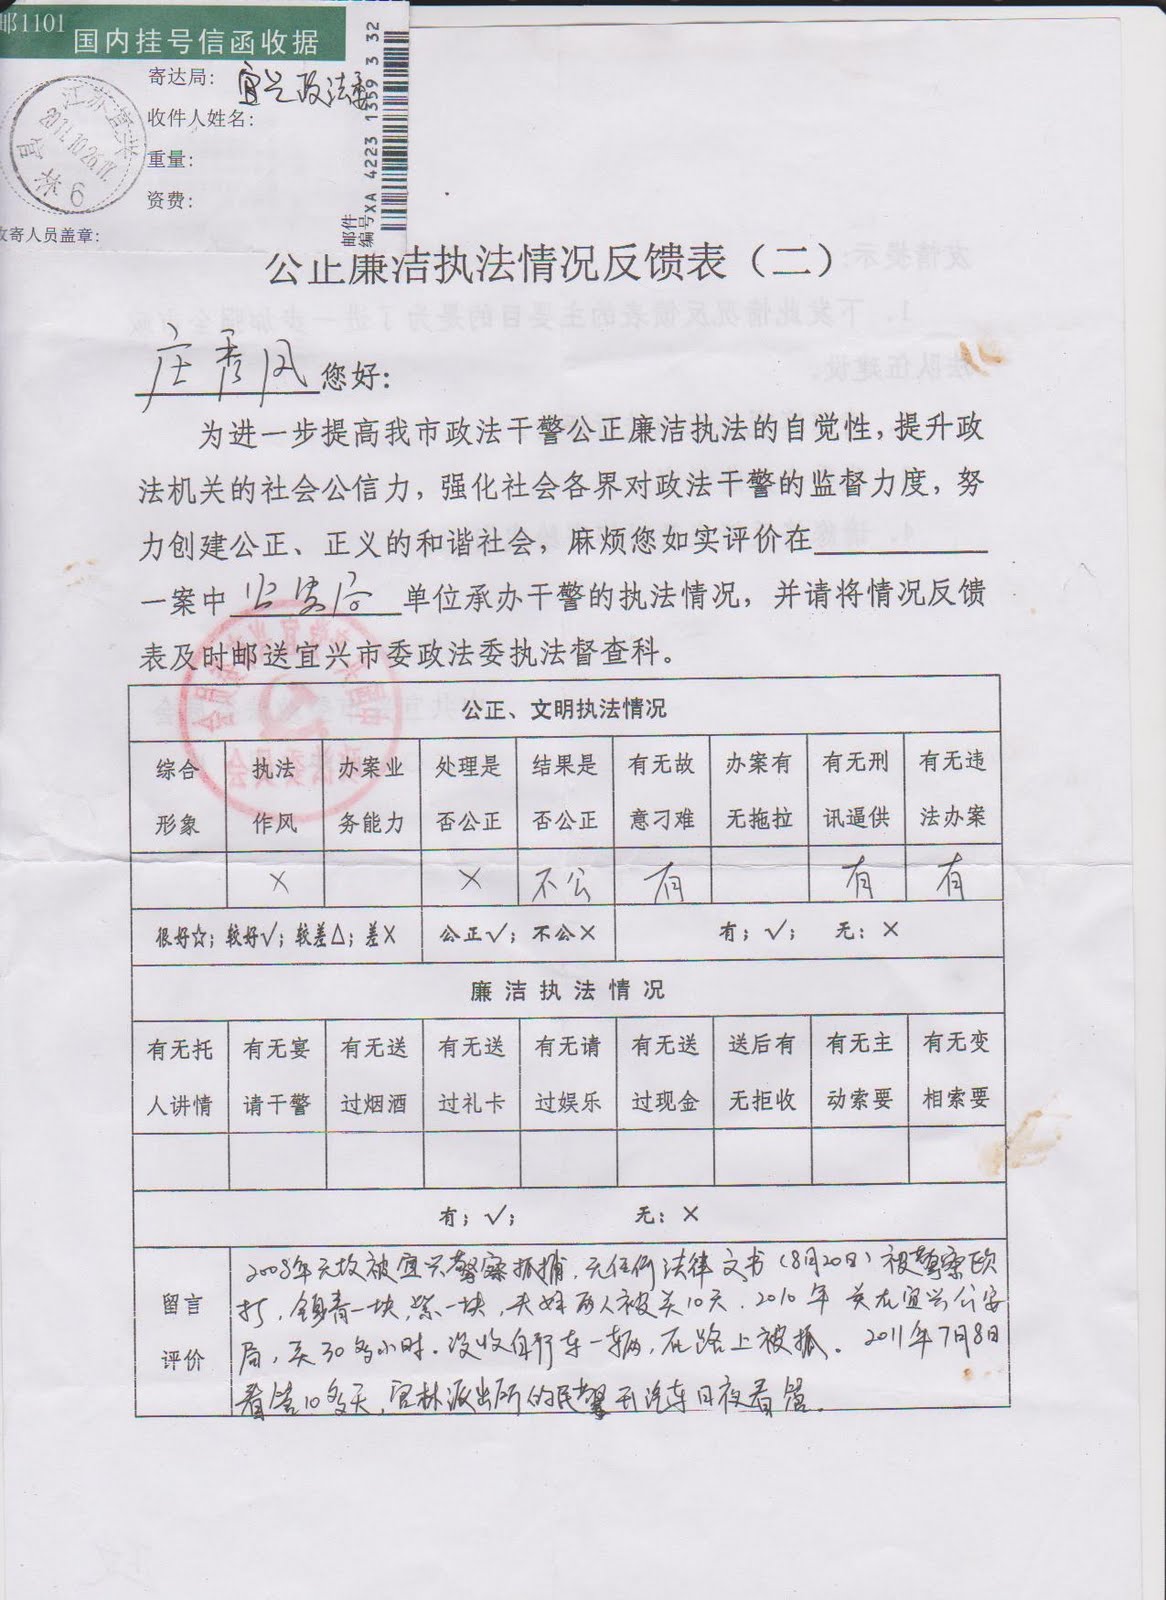 邮1101
国内挂号信函收据
寄达局: 宜兴政法委
收件人姓名:
重量:
资费:
收寄人员盖章:
邮件
编号XA 4223 1359 3 32
江苏宜兴
2011.10.26.17
官林
6
公正廉洁执法情况反馈表（二）
庄秀凤 您好:
为进一步提高我市政法干警公正廉洁执法的自觉性, 提升政
法机关的社会公信力, 强化社会各界对政法干警的监督力度, 努
力创建公正、正义的和谐社会, 麻烦您如实评价在
一案中 公安局 单位承办干警的执法情况, 并请将情况反馈
表及时邮送宜兴市委政法委执法督查科。
公正、文明执法情况
综合 执法 办案业 处理是 结果是 有无故 办案有 有无刑 有无违
形象 作风 务能力 否公正 否公正 意刁难 无拖拉 讯逼供 法办案
× × 不公 有 有 有
很好☆; 较好√; 较差△; 差× 公正√; 不公× 有: √; 无: ×
廉洁执法情况
有无托 有无宴 有无送 有无送 有无请 有无送 送后有 有无主 有无变
人讲情 请干警 过烟酒 过礼卡 过娱乐 过现金 无拒收 动索要 相索要
有: √; 无: ×
留言
评价
2008年无故被宜兴警察抓捕, 无任何法律文书 (8月20日) 被警察殴
打, 青一块, 紫一块, 夫妇两人被关10天. 2010年 关在宜兴公安
局, 关30多小时. 没收自行车一辆, 在路上被抓. 2011年7月8日
看管10多天, 官林派出所的民警 汽车日夜看管.